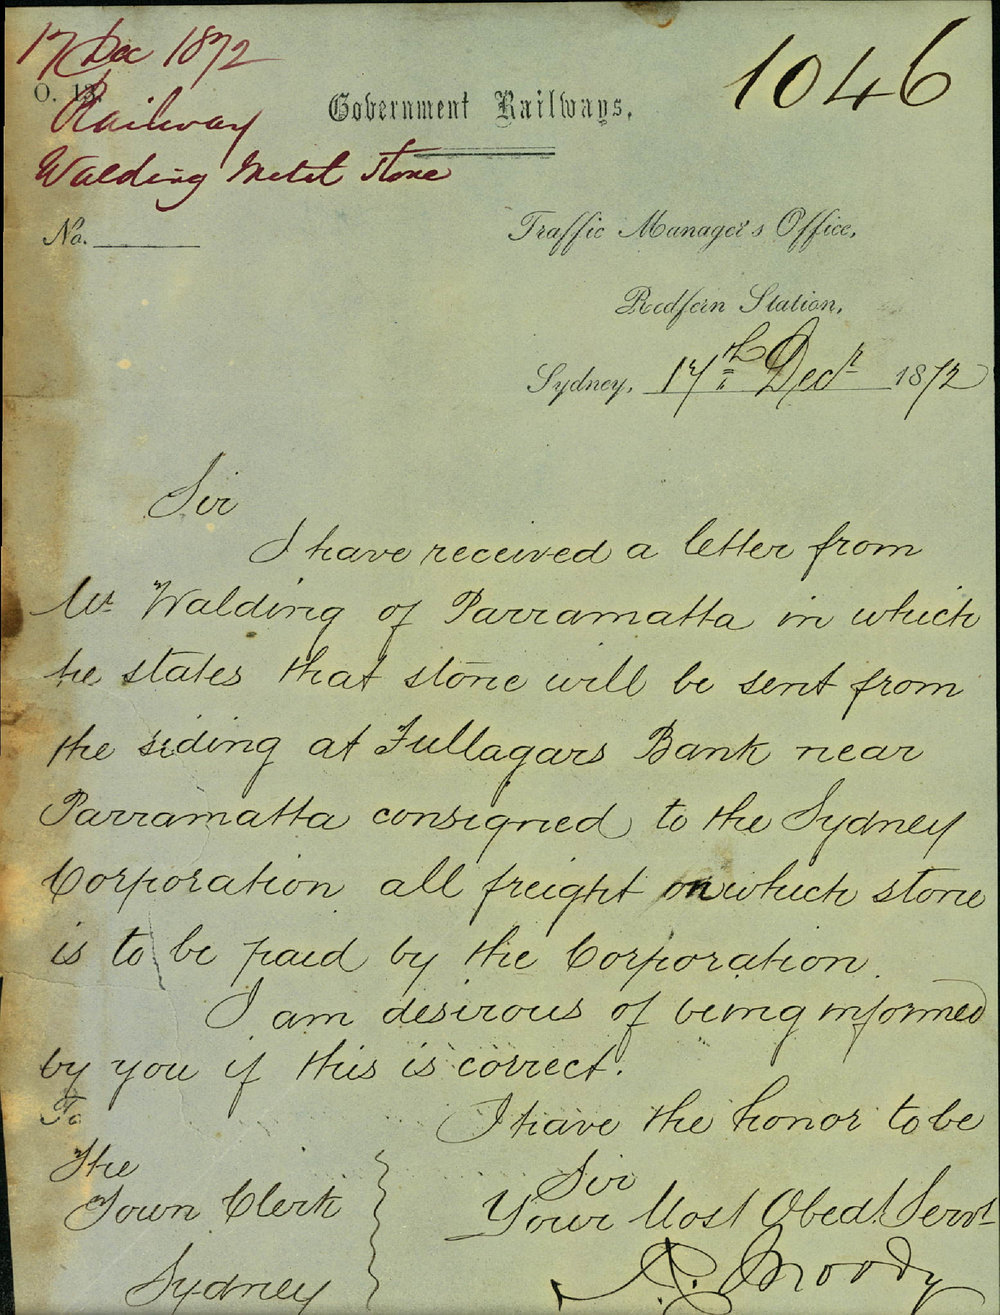 17 Dec 1872
1046
O. 13.
Railway
Government Railways.
Walding Metal Stone
No.
Traffic Manager's Office,
Redfern Station,
Sydney, 17th Decr 1872
Sir
I have received a letter from
Mr Walding of Parramatta in which
he states that stone will be sent from
the siding at Fullagars Bank near
Parramatta consigned to the Sydney
Corporation all freight on which stone
is to be paid by the Corporation.
I am desirous of being informed
by you if this is correct.
To
I have the honor to be
The
Sir
Town Clerk
Your Most Obedt. Servt
Sydney
A. Moody